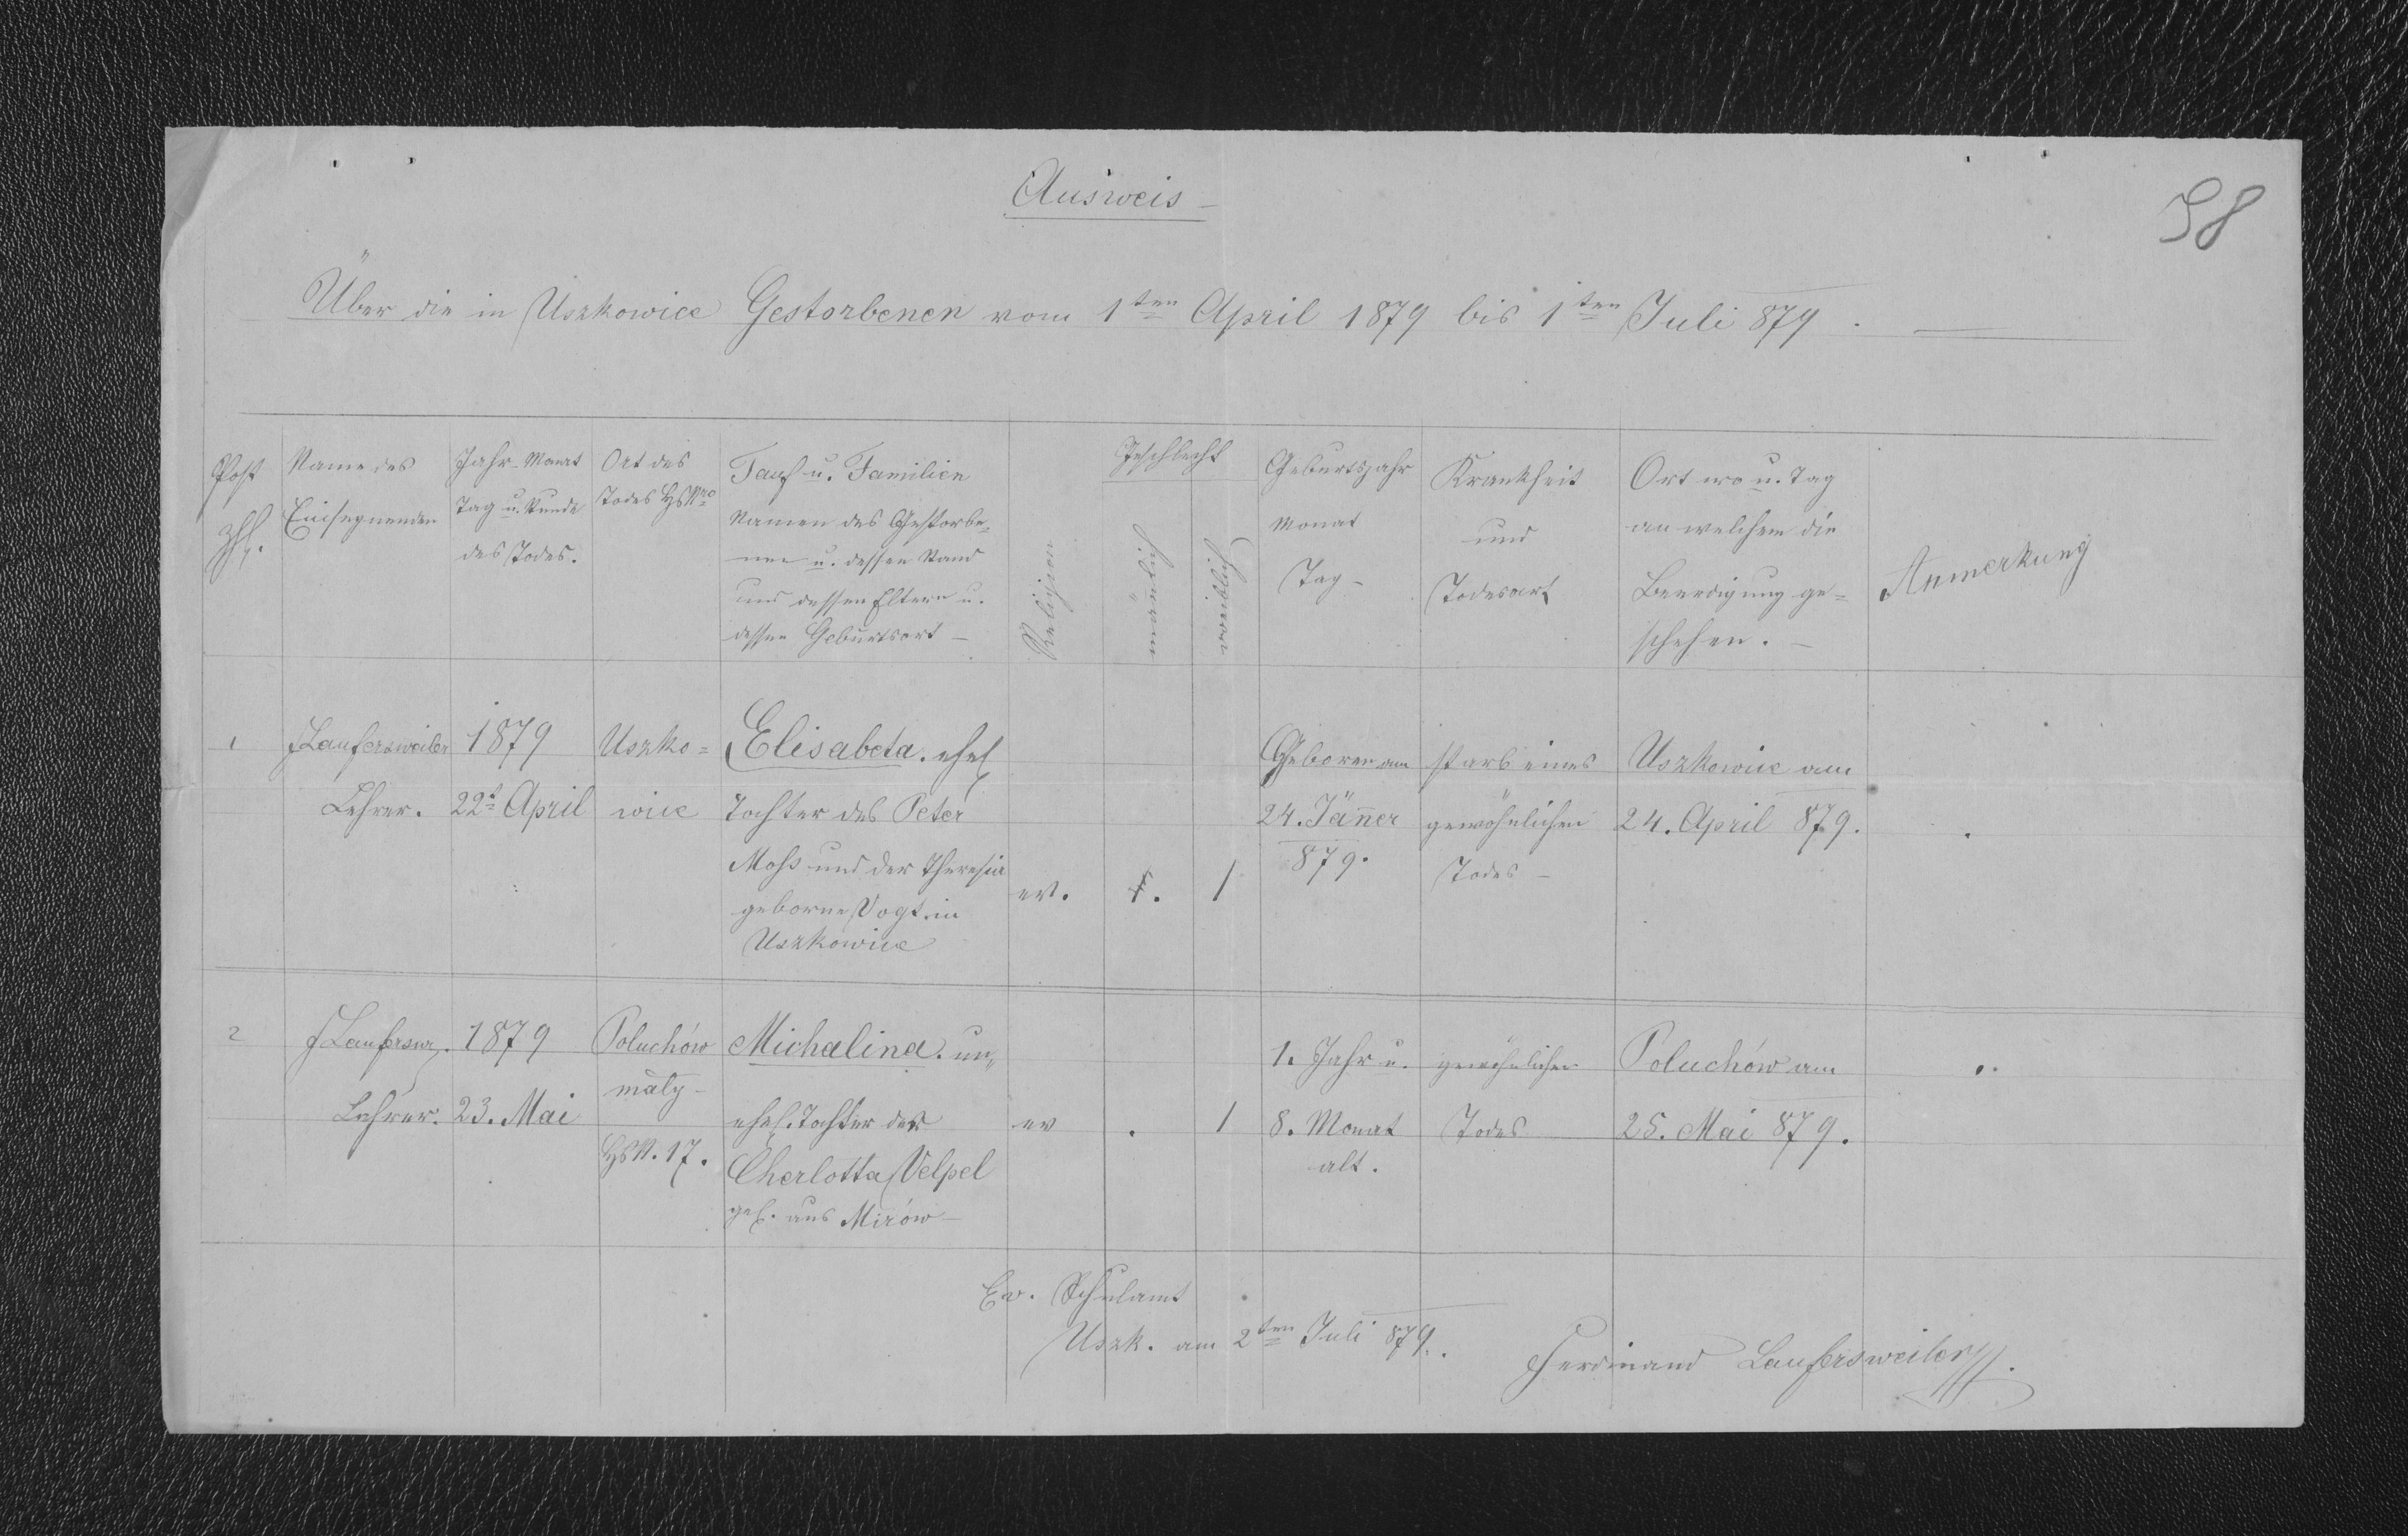 Ausweis
58
Über die in Uszkowice Gestorbenen vom 1ten April 1879 bis 1ten Juli 879.
Post
Zhl.
Name des
Einsegnenden
Jahr-Monat
Tag u. Stunde
des Todes.
Ort des
Todes HsNro
Tauf u. Familien
Namen des Gestorbe-
nen u. dessen Stand
und dessen Eltern u.
dessen Geburtsort –
Religion
Geschlecht
mänlich
weiblich
Geburtsjahr
Monat
Tag –
Krankheit
und
Todesart
Ort wo u. Tag
an welchem die
Beerdigung ge=
schehen. –
Anmerkung
1
F Laufersweiler
Lehrer.
1879
22t April
Uszko=
wice
Elisabeta. ehel
Tochter des Peter
Moss und der Theresia
geborne Vogt in
Uszkowice
ev.
1
Geboren am
24. Jäner
879.
starb eines
gewöhnlichen
Todes –
Uszkowice am
24. April 879.
2
F Laufersw.
Lehrer.
1879
23. Mai
Poluchów
mały –
HsN. 17.
Michalina. un=
ehel. Tochter der
Cherlotta Velpel
geb. aus Mirów –
ev
.
1
1. Jahr u.
8. Monat
alt.
gewöhnlichen
Todes
Poluchów am
25. Mai 879.
Ev. Schulamt
Uszk. am 2ten Juli 879.
Ferdinand Laufersweiler